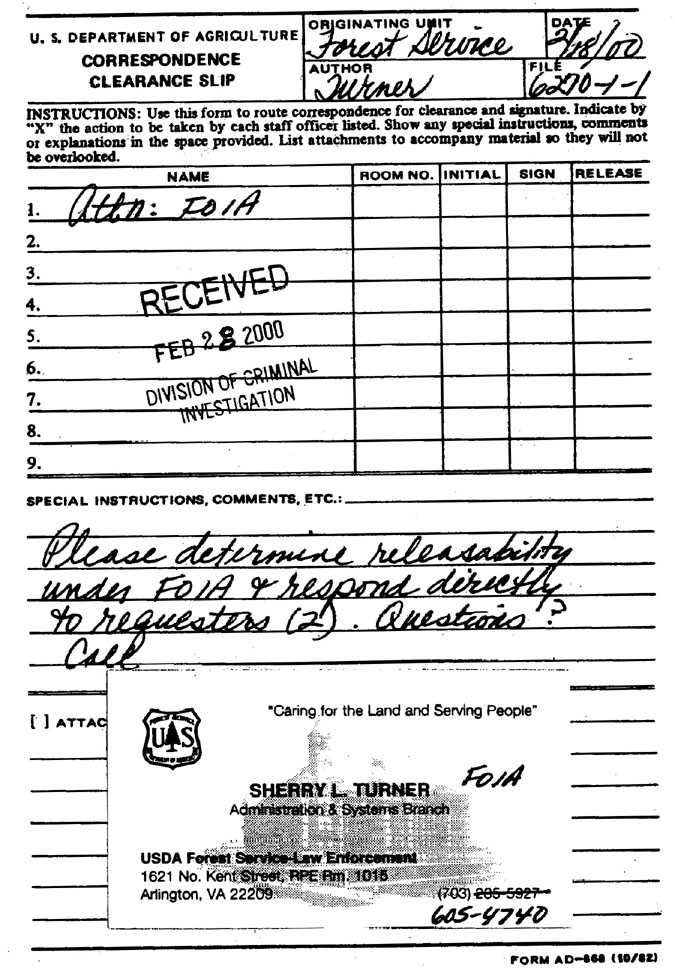 U. S. DEPARTMENT OF AGRICULTURE
CORRESPONDENCE
CLEARANCE SLIP
ORIGINATING UNIT
Forest Service
DATE
2/18/00
AUTHOR
Turner
FILE
6270-1-1
INSTRUCTIONS: Use this form to route correspondence for clearance and signature. Indicate by
“X” the action to be taken by each staff officer listed. Show any special instructions, comments
or explanations in the space provided. List attachments to accompany material so they will not
be overlooked.
NAME ROOM NO. INITIAL SIGN RELEASE
1. Attn: FOIA
2.
3.
4.
5.
6.
7.
8.
9.
RECEIVED
FEB 28 2000
DIVISION OF CRIMINAL
INVESTIGATION
SPECIAL INSTRUCTIONS, COMMENTS, ETC.:
Please determine releasability
under FOIA & respond directly
to requesters (2). Questions?
Call
[ ] ATTAC
"Caring for the Land and Serving People"
FOREST SERVICE
US
DEPARTMENT OF AGRICULTURE
SHERRY L. TURNER FOIA
Administration & Systems Branch
USDA Forest Service-Law Enforcement
1621 No. Kent Street, RPE Rm. 1015
Arlington, VA 22209 (703) 285-5927
605-4740
FORM AD-668 (10/82)